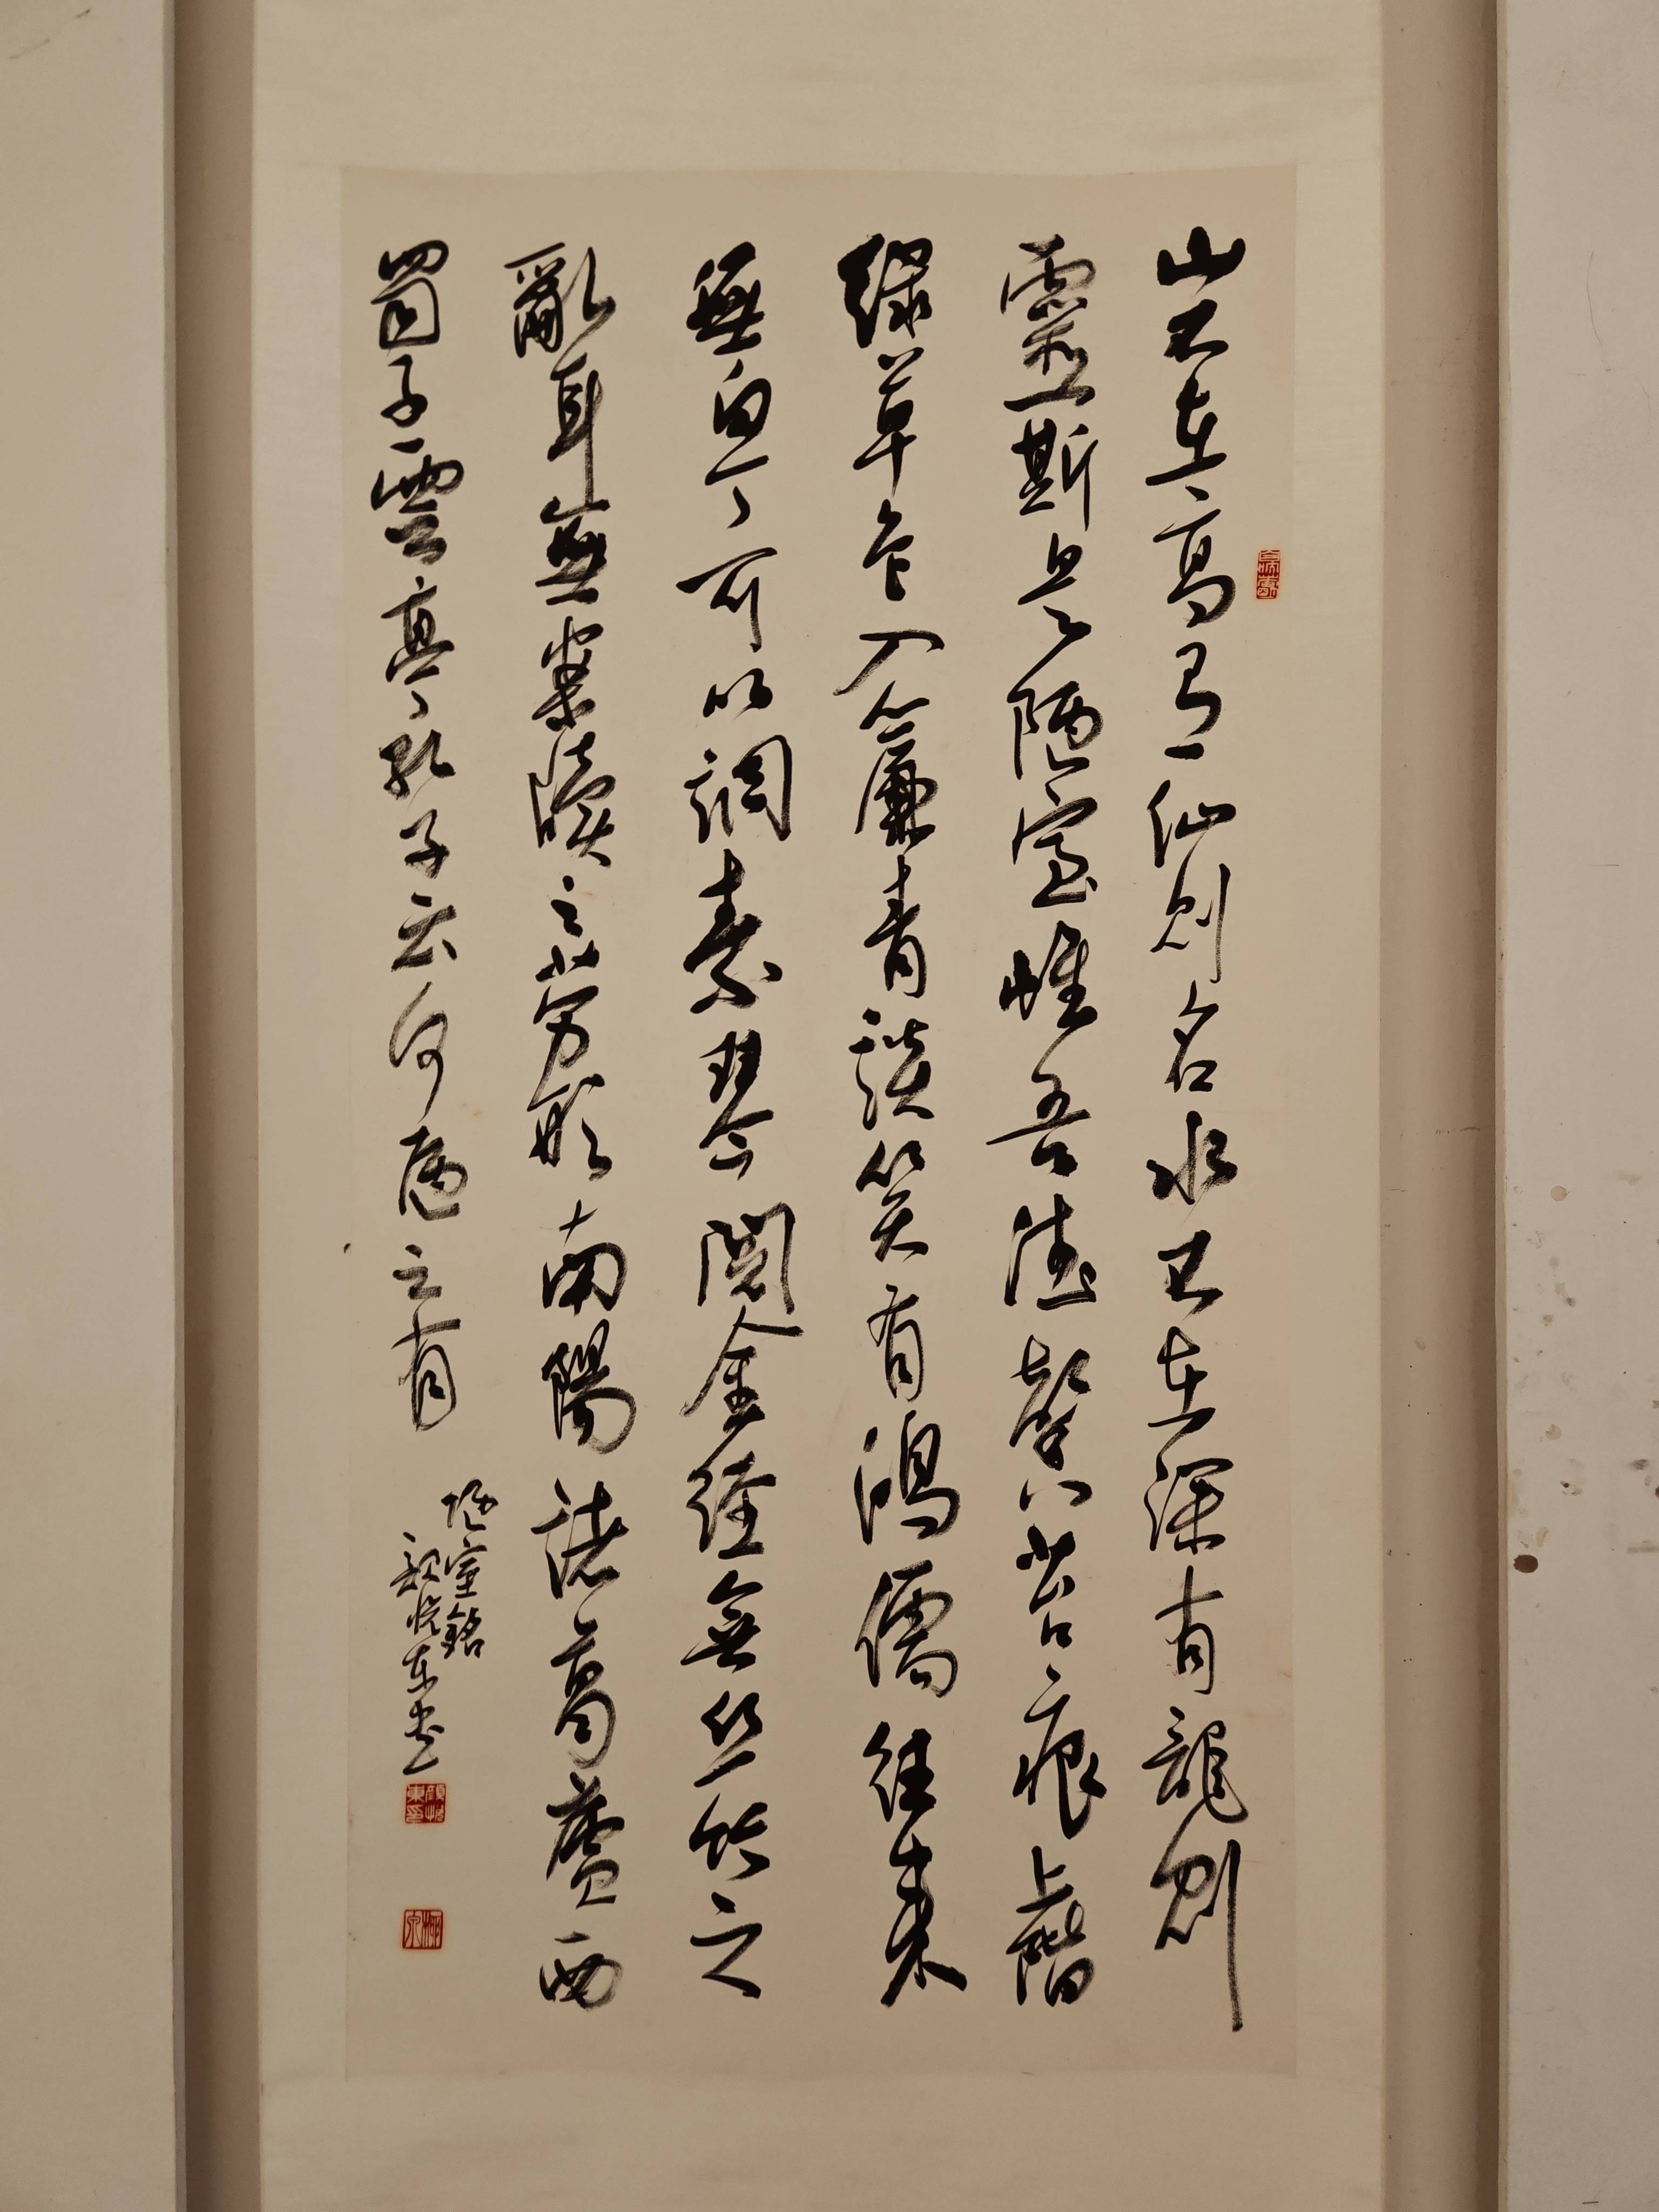 山不在高有仙則名水不在深有龍則
靈斯是陋室惟吾德馨苔痕上階
綠草色入簾青談笑有鴻儒往來
無白丁可以調素琴閱金經無絲竹之
亂耳無案牘之勞形南陽諸葛廬西
蜀子雲亭孔子云何陋之有
陋室銘
顏悅東書
顏悅東印